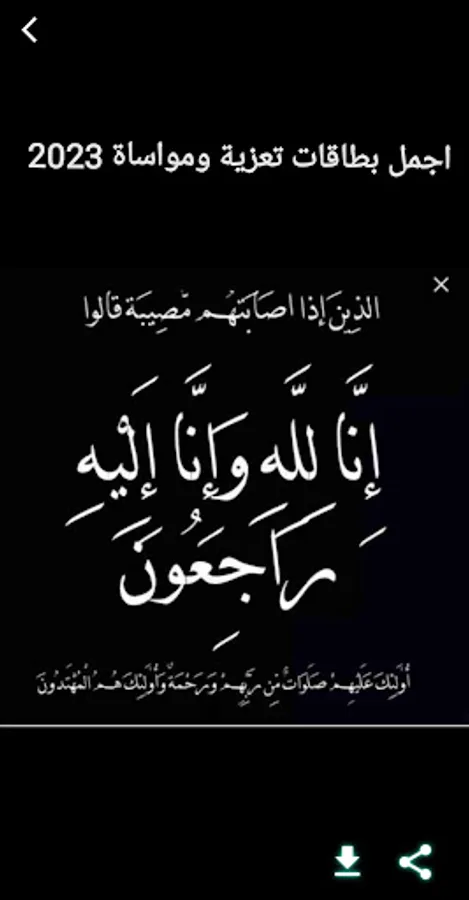 اجمل بطاقات تعزية ومواساة 2023
الذِينَ إذا اصَابَتهُم مّصِيبَة قالوا
إِنَّا لِلَّه وَإِنَّا إِلَيْهِ
رَاجِعُونَ
أُولَئِكَ عَلَيْهِمْ صَلَوَاتٌ مِّن رَبِّهِمْ وَرَحْمَةٌ وَأُولَئِكَ هُمُ الْمُهْتَدُونَ